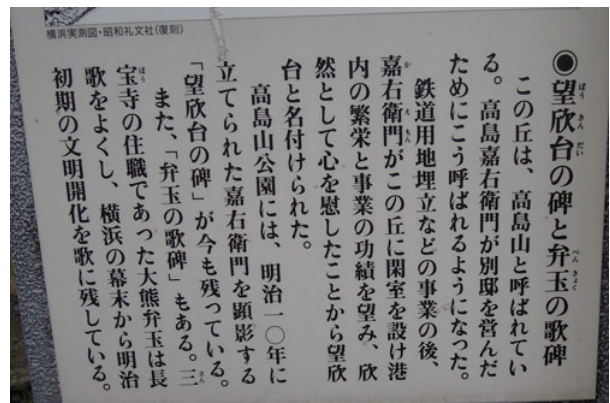 横浜実測図・昭和礼文社(復刻)
◉望欣台の碑と弁玉の歌碑
この丘は、高島山と呼ばれてい
る。高島嘉右衛門が別邸を営んだ
ためにこう呼ばれるようになった。
鉄道用地埋立などの事業の後、
嘉右衛門がこの丘に閑室を設け港
内の繁栄と事業の功績を望み、欣
然として心を慰したことから望欣
台と名付けられた。
高島山公園には、明治一〇年に
立てられた嘉右衛門を顕彰する
「望欣台の碑」が今も残っている。
また、「弁玉の歌碑」もある。三
宝寺の住職であった大熊弁玉は長
歌をよくし、横浜の幕末から明治
初期の文明開化を歌に残している。